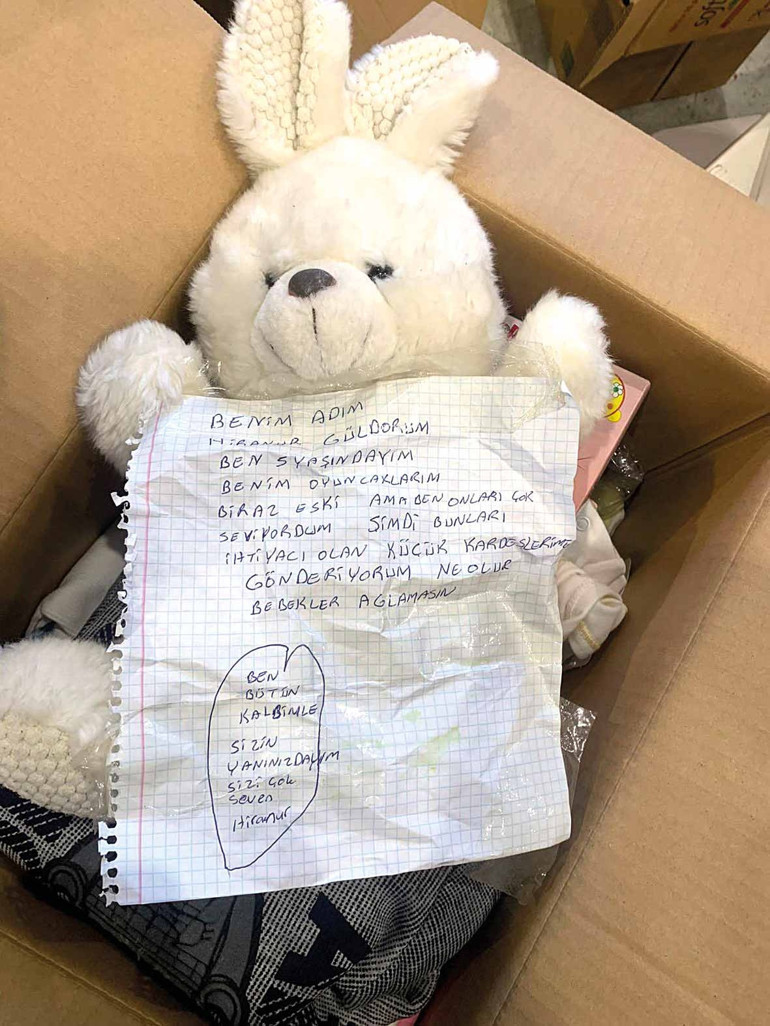 BENİM ADIM
HİRANUR GÜLDORUM
BEN 5 YAŞINDAYIM
BENİM OYUNCAKLARIM
BİRAZ ESKİ AMA BEN ONLARI ÇOK
SEVİYORDUM ŞİMDİ BUNLARI
İHTİYACI OLAN KÜÇÜK KARDEŞLERİME
GÖNDERİYORUM NE OLUR
BEBEKLER AĞLAMASIN
BEN
BÜTÜN
KALBİMLE
SİZİN
YANINIZDAYIM
SİZİ ÇOK
SEVEN
Hiranur